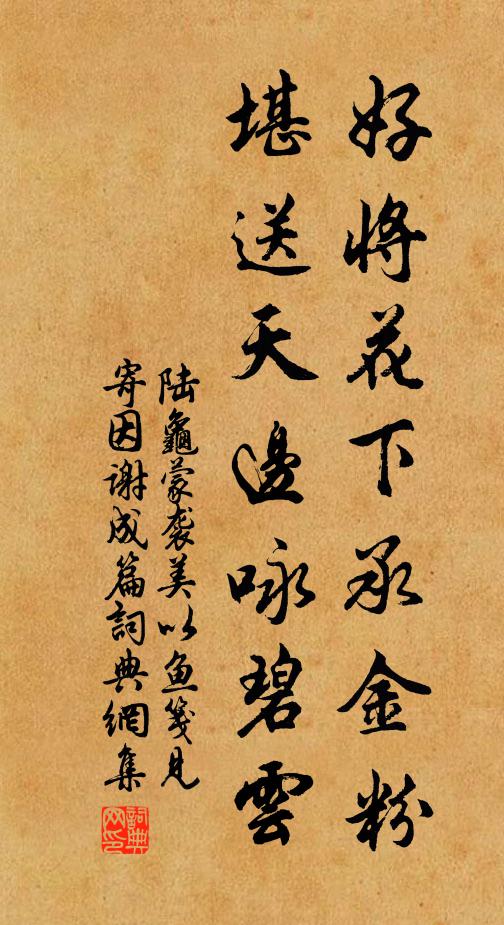 好將花下承金粉
堪送天邊咏碧雲
陆龜蒙袭美以鱼箋見
寄因谢成篇詞典網集
詞典网印